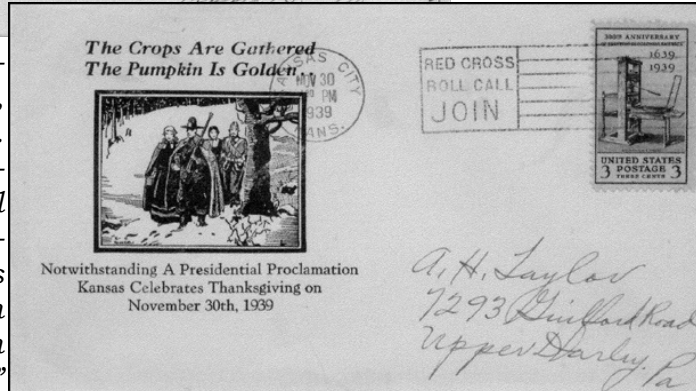 The Crops Are Gathered
The Pumpkin Is Golden,
Notwithstanding A Presidential Proclamation
Kansas Celebrates Thanksgiving on
November 30th, 1939
KANSAS CITY
NOV 30
PM
1939
KANS.
RED CROSS
ROLL CALL
JOIN
300TH ANNIVERSARY
1639
1939
UNITED STATES
3 POSTAGE 3
THREE CENTS
A. H. Taylor
7293 Guilford Road
Upper Darby, Pa